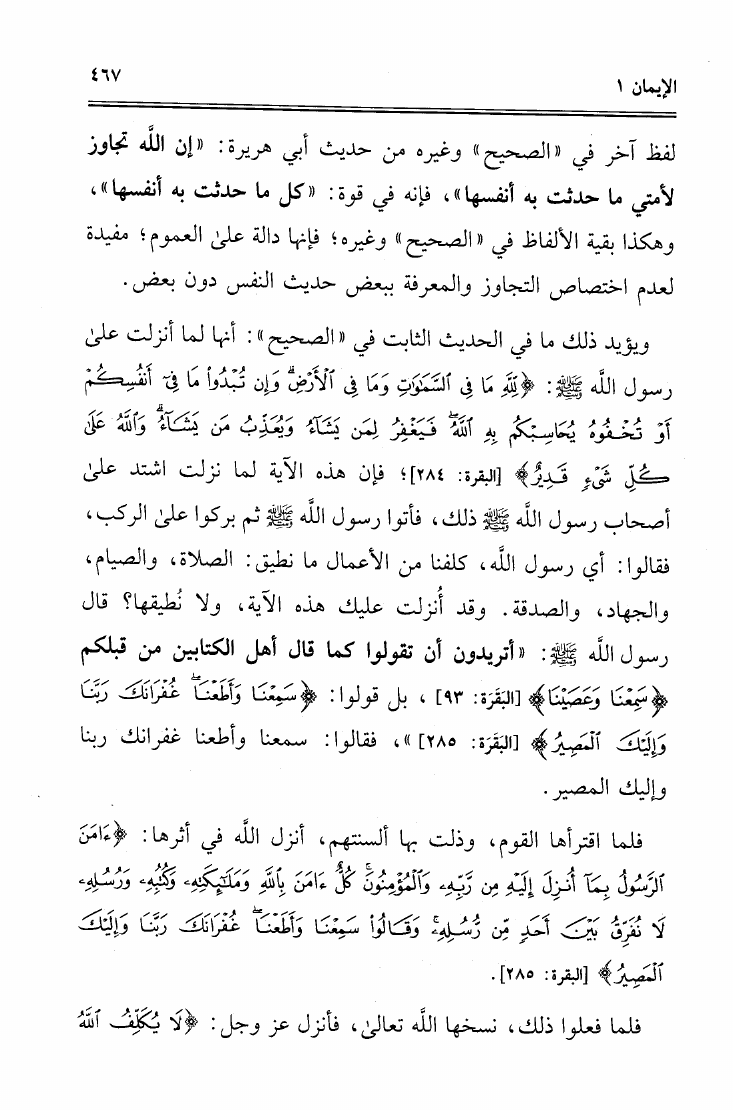 الإيمان ١
٤٦٧
لفظ آخر في «الصحيح» وغيره من حديث أبي هريرة: «إن اللَّه تجاوز
لأمتي ما حدثت به أنفسها»، فإنه في قوة: «كل ما حدثت به أنفسها»،
وهكذا بقية الألفاظ في «الصحيح» وغيره؛ فإنها دالة علىٰ العموم؛ مفيدة
لعدم اختصاص التجاوز والمعرفة ببعض حديث النفس دون بعض.
ويؤيد ذلك ما في الحديث الثابت في «الصحيح»: أنها لما أنزلت علىٰ
رسول اللَّه ﷺ: ﴿لِلَّهِ مَا فِي ٱلسَّمَٰوَٰتِ وَمَا فِي ٱلْأَرْضِۗ وَإِن تُبْدُوا۟ مَا فِىٓ أَنفُسِكُمْ
أَوْ تُخْفُوهُ يُحَاسِبْكُم بِهِ ٱللَّهُۖ فَيَغْفِرُ لِمَن يَشَآءُ وَيُعَذِّبُ مَن يَشَآءُۗ وَٱللَّهُ عَلَىٰ
كُلِّ شَىْءٍ قَدِيرٌ﴾ [البقرة: ٢٨٤]؛ فإن هذه الآية لما نزلت اشتد علىٰ
أصحاب رسول اللَّه ﷺ ذلك، فأتوا رسول اللَّه ﷺ ثم بركوا علىٰ الركب،
فقالوا: أي رسول اللَّه، كلفنا من الأعمال ما نطيق: الصلاة، والصيام،
والجهاد، والصدقة. وقد أُنزلت عليك هذه الآية، ولا نُطيقها؟ قال
رسول اللَّه ﷺ: «أتريدون أن تقولوا كما قال أهل الكتابين من قبلكم
﴿سَمِعْنَا وَعَصَيْنَا﴾ [البَقَرَة: ٩٣] ، بل قولوا: ﴿سَمِعْنَا وَأَطَعْنَاۖ غُفْرَانَكَ رَبَّنَا
وَإِلَيْكَ ٱلْمَصِيرُ﴾ [البَقَرَة: ٢٨٥] »، فقالوا: سمعنا وأطعنا غفرانك ربنا
وإليك المصير.
فلما اقترأها القوم، وذلت بها ألسنتهم، أنزل اللَّه في أثرها: ﴿ءَامَنَ
ٱلرَّسُولُ بِمَآ أُنزِلَ إِلَيْهِ مِن رَّبِّهِۦ وَٱلْمُؤْمِنُونَۚ كُلٌّ ءَامَنَ بِٱللَّهِ وَمَلَٰٓئِكَتِهِۦ وَكُتُبِهِۦ وَرُسُلِهِۦ
لَا نُفَرِّقُ بَيْنَ أَحَدٍ مِّن رُّسُلِهِۦۚ وَقَالُوا۟ سَمِعْنَا وَأَطَعْنَاۖ غُفْرَانَكَ رَبَّنَا وَإِلَيْكَ
ٱلْمَصِيرُ﴾ [البقرة: ٢٨٥].
فلما فعلوا ذلك، نسخها اللَّه تعالىٰ، فأنزل عز وجل: ﴿لَا يُكَلِّفُ ٱللَّهُ